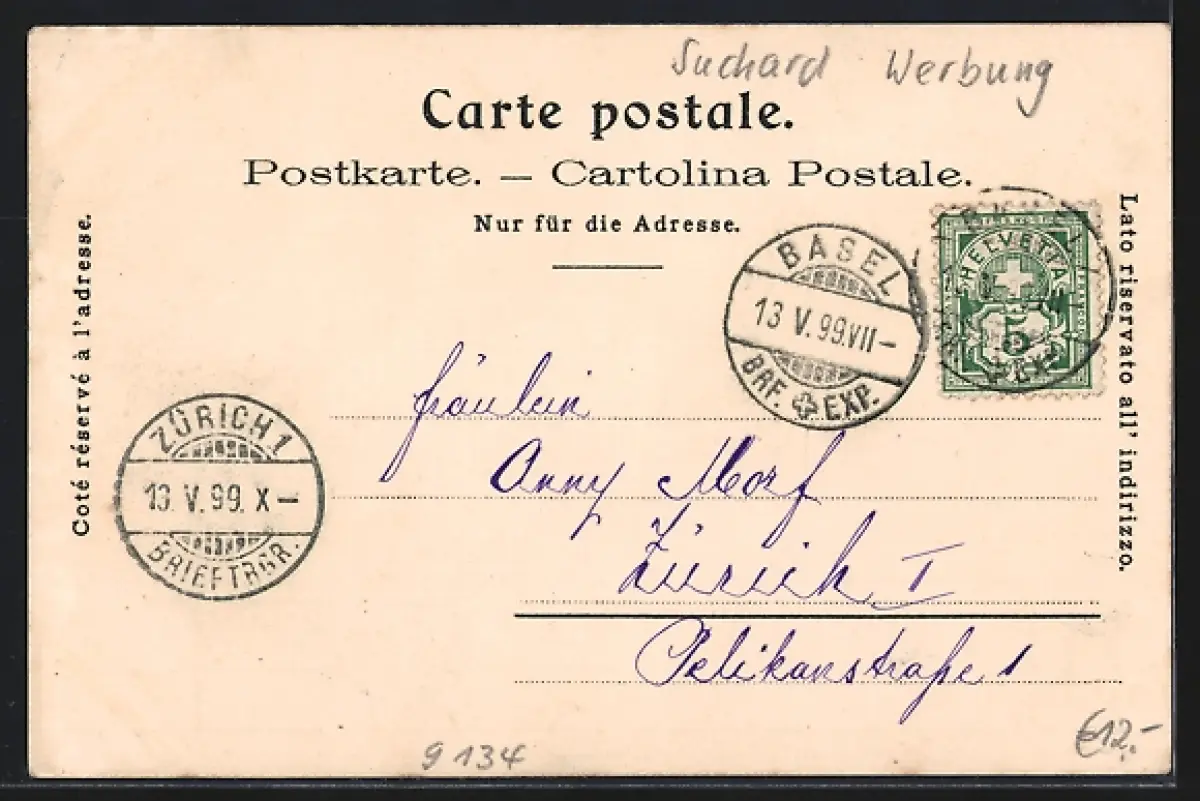 Suchard Werbung
Carte postale.
Postkarte. — Cartolina Postale.
Nur für die Adresse.
Coté réservé à l'adresse.
Lato riservato all' indirizzo.
BASEL
13 V. 99.VII–
BRF. EXP.
HELVETIA
FRANCO
5
EXP.
ZÜRICH 1
13. V. 99. X–
BRIEFTRGR.
Fräulein
Anny Morf
Zürich I
Pelikanstraße 1
g 134
€12,-